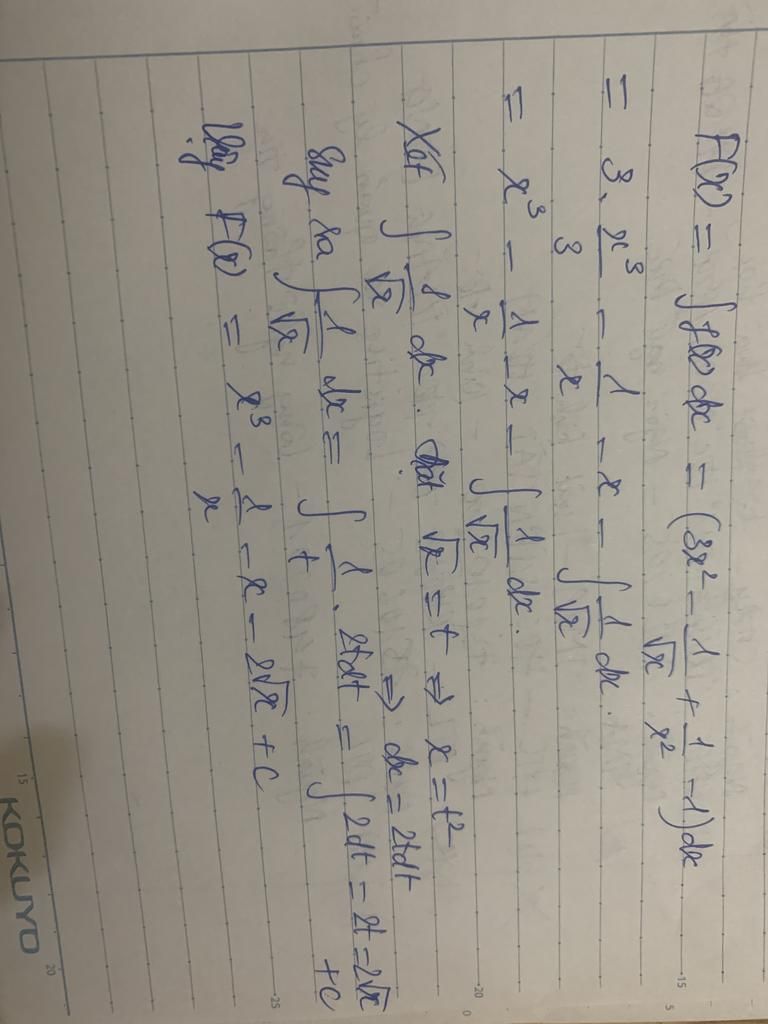 F(x) = ∫f(x) dx = (3x² - 1/√x + 1/x² - 1) dx
= 3. x³/3 - 1/x - x - ∫ 1/√x dx.
= x³ - 1/x - x - ∫ 1/√x dx.
Xét ∫ 1/√x dx. Đặt √x = t ⇒ x = t²
⇒ dx = 2tdt
Suy ra ∫ 1/√x dx = ∫ 1/t . 2tdt = ∫ 2dt = 2t = 2√x
+C
Vậy F(x) = x³ - 1/x - x - 2√x + C
KOKUYO
5
15
0
20
25
15
20